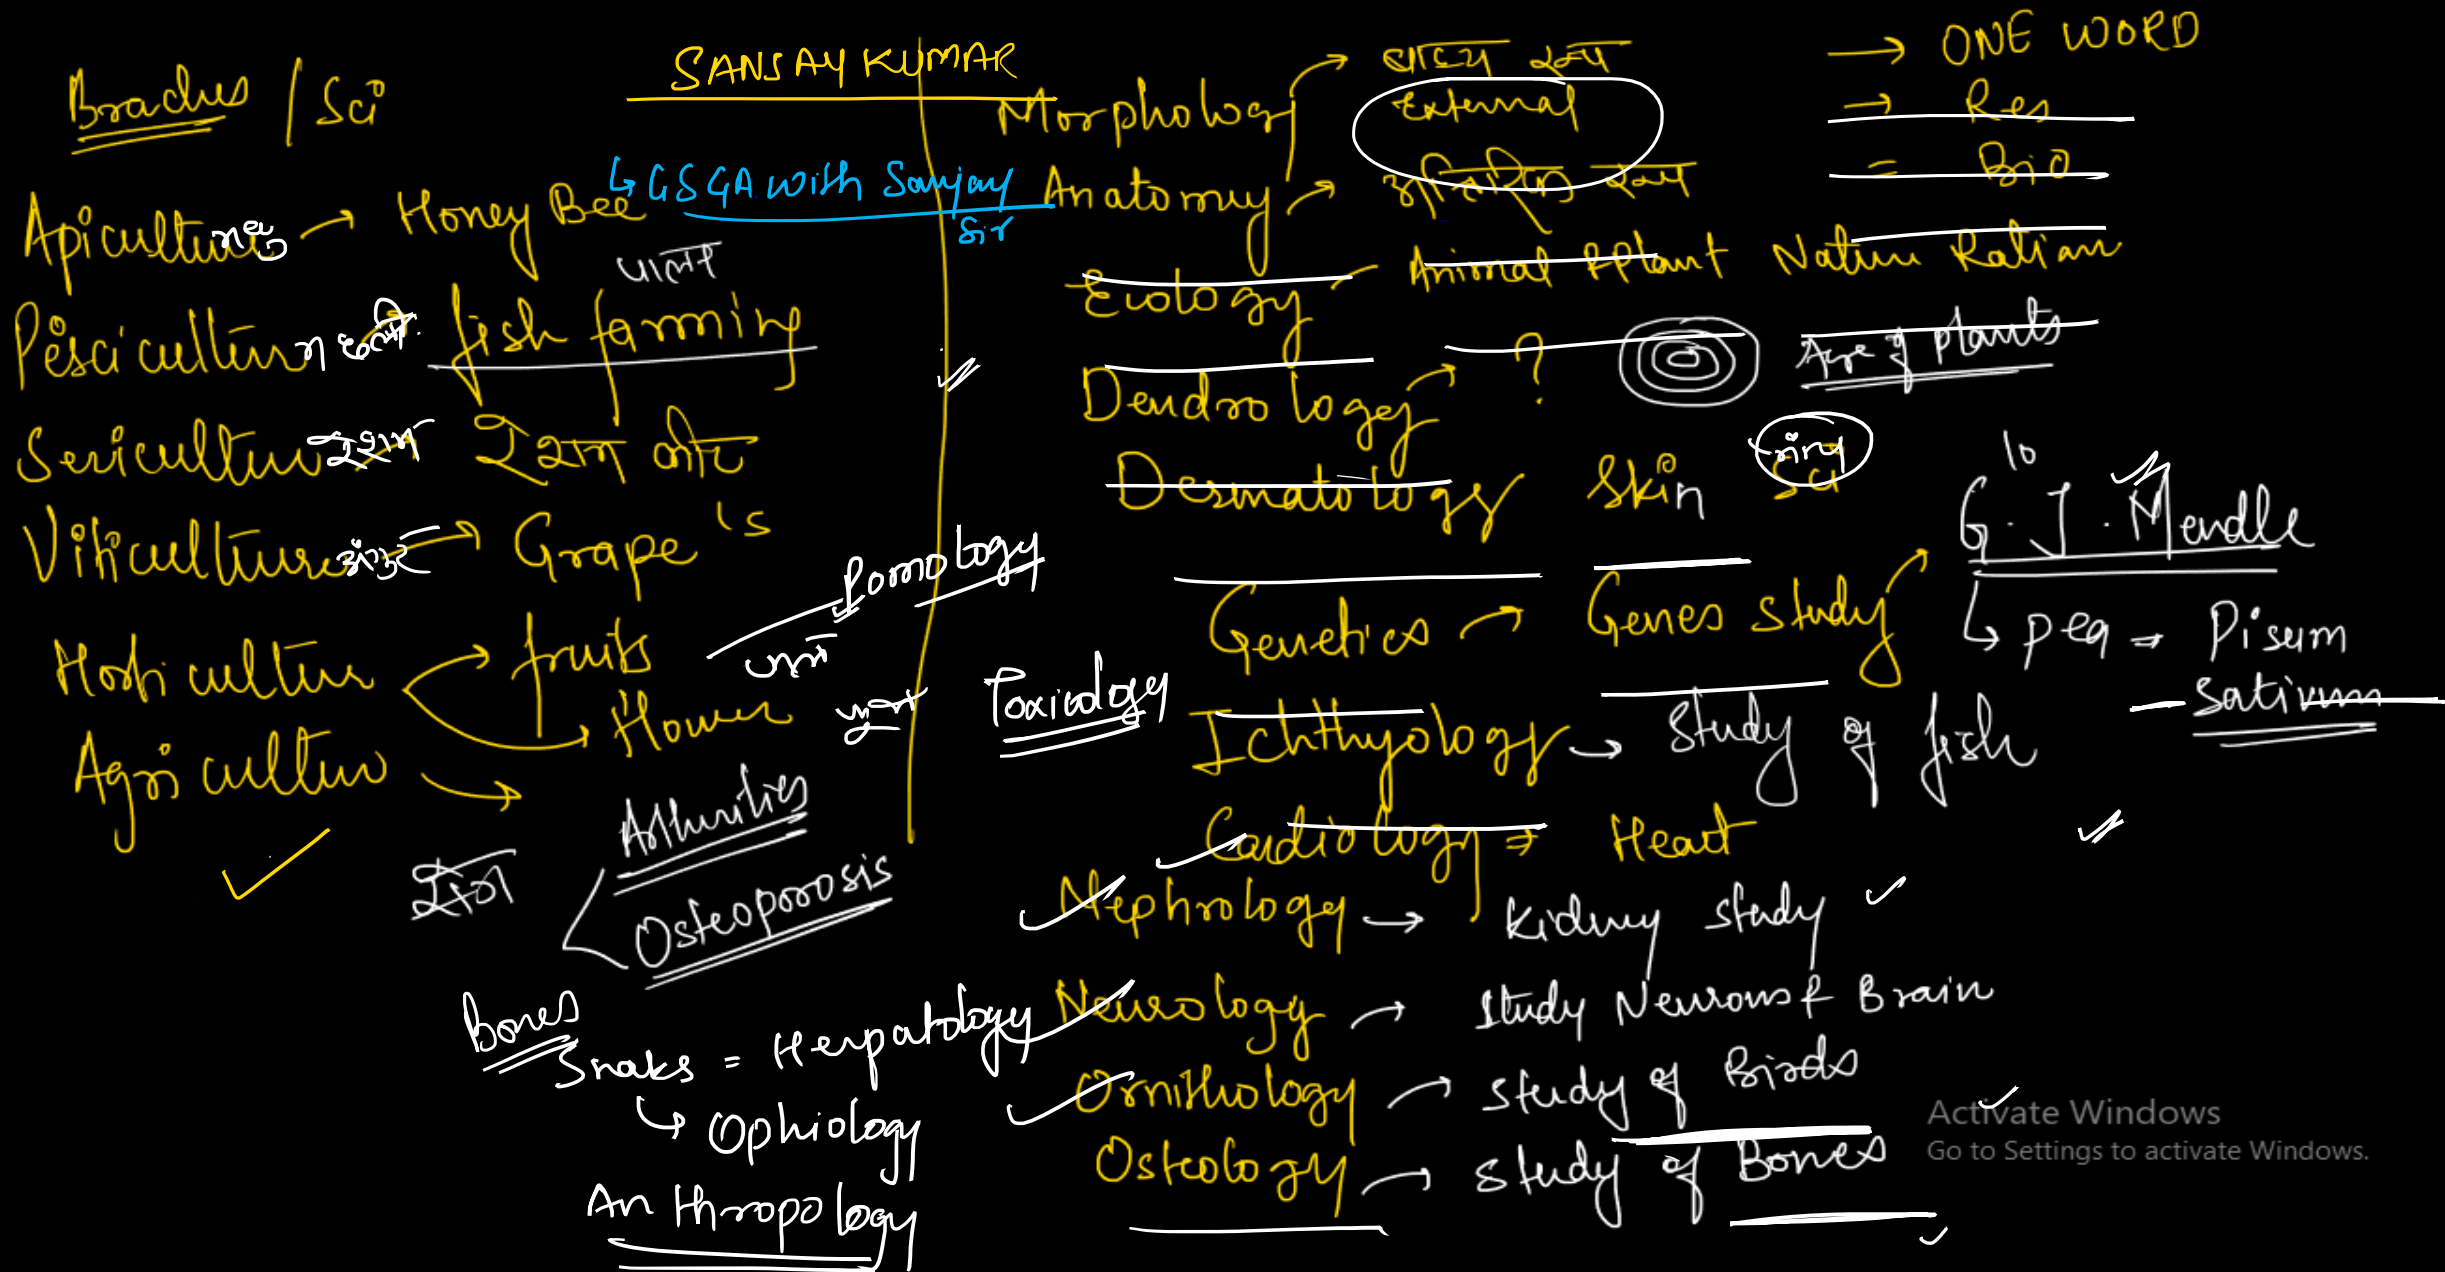 Bradus / Sci
SANSAY KUMAR
↳ GSGA with Sanjay
Sir
Apiculture → Honey Bee
पालन
Pisciculture → fish farming
Sericulture रेशम रेशम कीट
Viticulture अंगूर → Grape's
Horticultur → fruits
→ Flower
Pomology
फलों
फूल
Agricultur →
Toxicology
Arthurities
रोग
Osteoporosis
Bones
Snaks = Herpatology
↳ Ophiology
Anthropology
→ ONE WORD
→ Res
= Bio
Morphology → बाह्य रूप
External
Anatomy → आंतरिक रूप
Ecology - Animal & Plant Nature Ration
Dendrology → ? Age of plants
Desmatology Skin Sci
Genetics → Genes study → G. J. Mendle
10
↳ pea → Pisum
- Sativum
Ichthyology → Study of fish
Cardiology ⇒ Heart
Nephrology → Kidney study
Neurology → Study Neurons & Brain
Ornithology → study of Birds
Osteology → study of Bones
Activate Windows
Go to Settings to activate Windows.